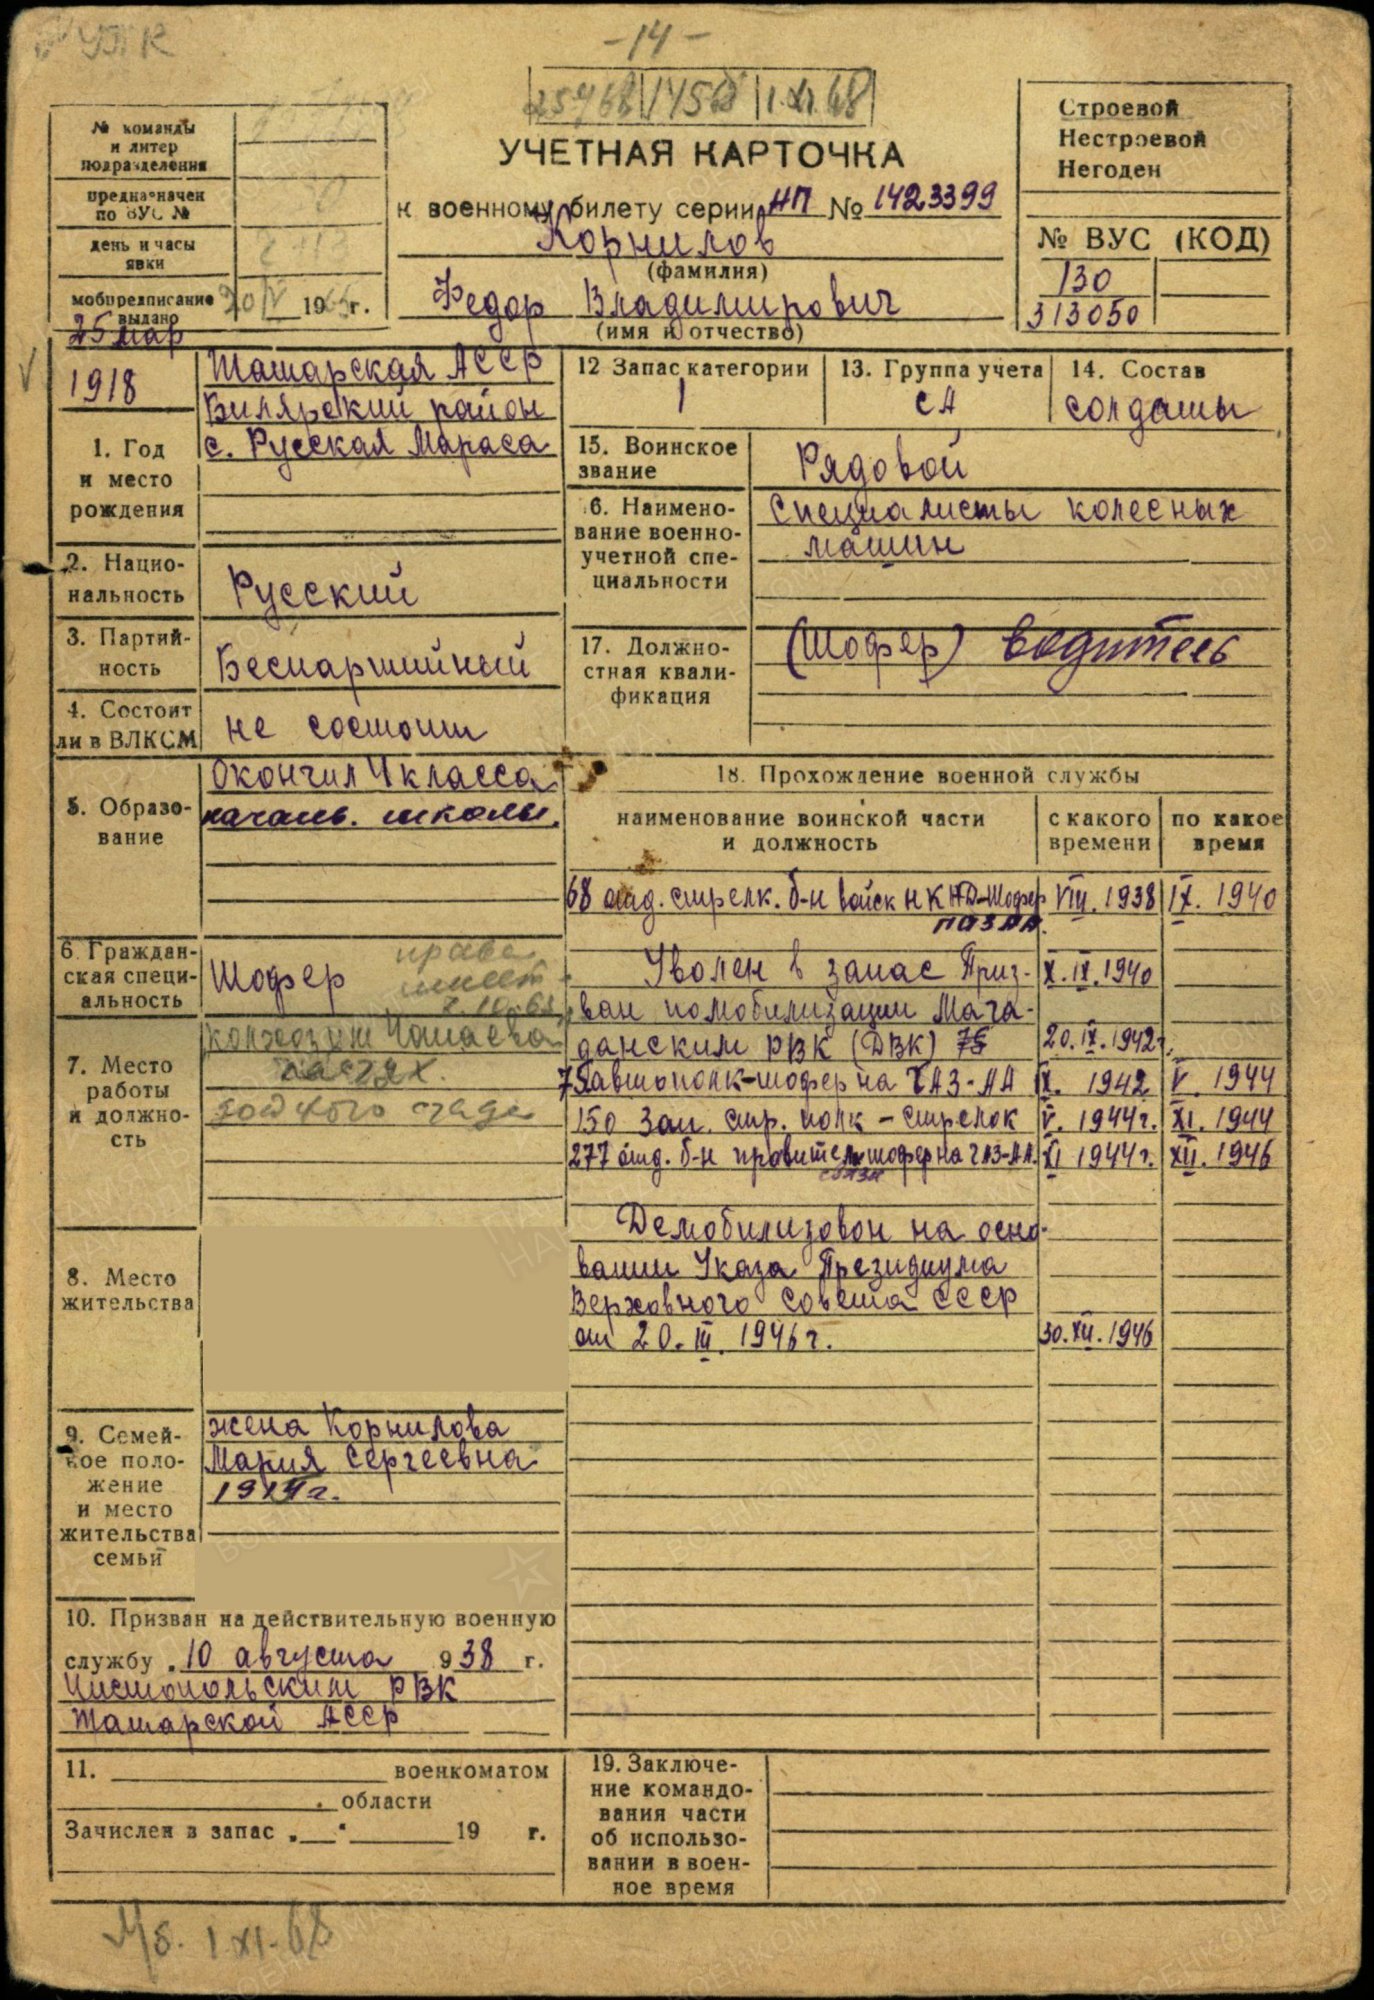 УПК
-14-
1.XI.68
№ команды
и литер
подразделения
предназначен
по ВУС №
день и часы
явки
мобпредписание
выдано
20/V 1965 г.
УЧЕТНАЯ КАРТОЧКА
к военному билету серии НП № 1423399
Корнилов
(фамилия)
Федор Владимирович
(имя и отчество)
Строевой
Нестроевой
Негоден
№ ВУС (КОД)
130
313050
25 мар
1918
Татарская АССР
Билярский район
с. Русская Мараса
1. Год
и место
рождения
2. Нацио-
нальность
Русский
3. Партий-
ность
Беспартийный
4. Состоит
ли в ВЛКСМ
не состоит
5. Образо-
вание
Окончил 4 класса
началь. школы.
6. Граждан-
ская специ-
альность
Шофер
права
имеет
7. Место
работы
и должно-
сть
колхозит Чапаева
пастух
8. Место
жительства
9. Семей-
ное поло-
жение
и место
жительства
семьи
жена Корнилова
Мария Сергеевна
1914г.
10. Призван на действительную военную
службу „10 августа 938 г.
Чистопольским РВК
Татарской АССР
11. военкоматом
области
Зачислен в запас „ “ 19 г.
12 Запас категории
1
13. Группа учета
СА
14. Состав
солдаты
15. Воинское
звание
Рядовой
6. Наимено-
вание военно-
учетной спе-
циальности
Специалисты колесных
машин
17. Должно-
стная квали-
фикация
(Шофер) водитель
18. Прохождение военной службы
наименование воинской части
и должность
с какого
времени
по какое
время
68 отд. стрелк. б-н войск НКВД-Шофер VIII. 1938 IX. 1940
Уволен в запас Приз- X.IX.1940
ван по мобилизации Мага-
данским РВК (ДВК) 75 20.IX.1942г.
75 автополк-шофер на ГАЗ-АА IX. 1942 V. 1944
150 Зап. стр. полк - стрелок V. 1944г. XI. 1944
277 отд. б-н правител. шофер на ГАЗ-АА. XI 1944г. XII. 1946
связи
Демобилизован на осно-
вании Указа Президиума
Верховного Совета СССР
от 20.III.1946г. 30.XII.1946
19. Заключе-
ние командо-
вания части
об использо-
вании в воен-
ное время
1.XI.68